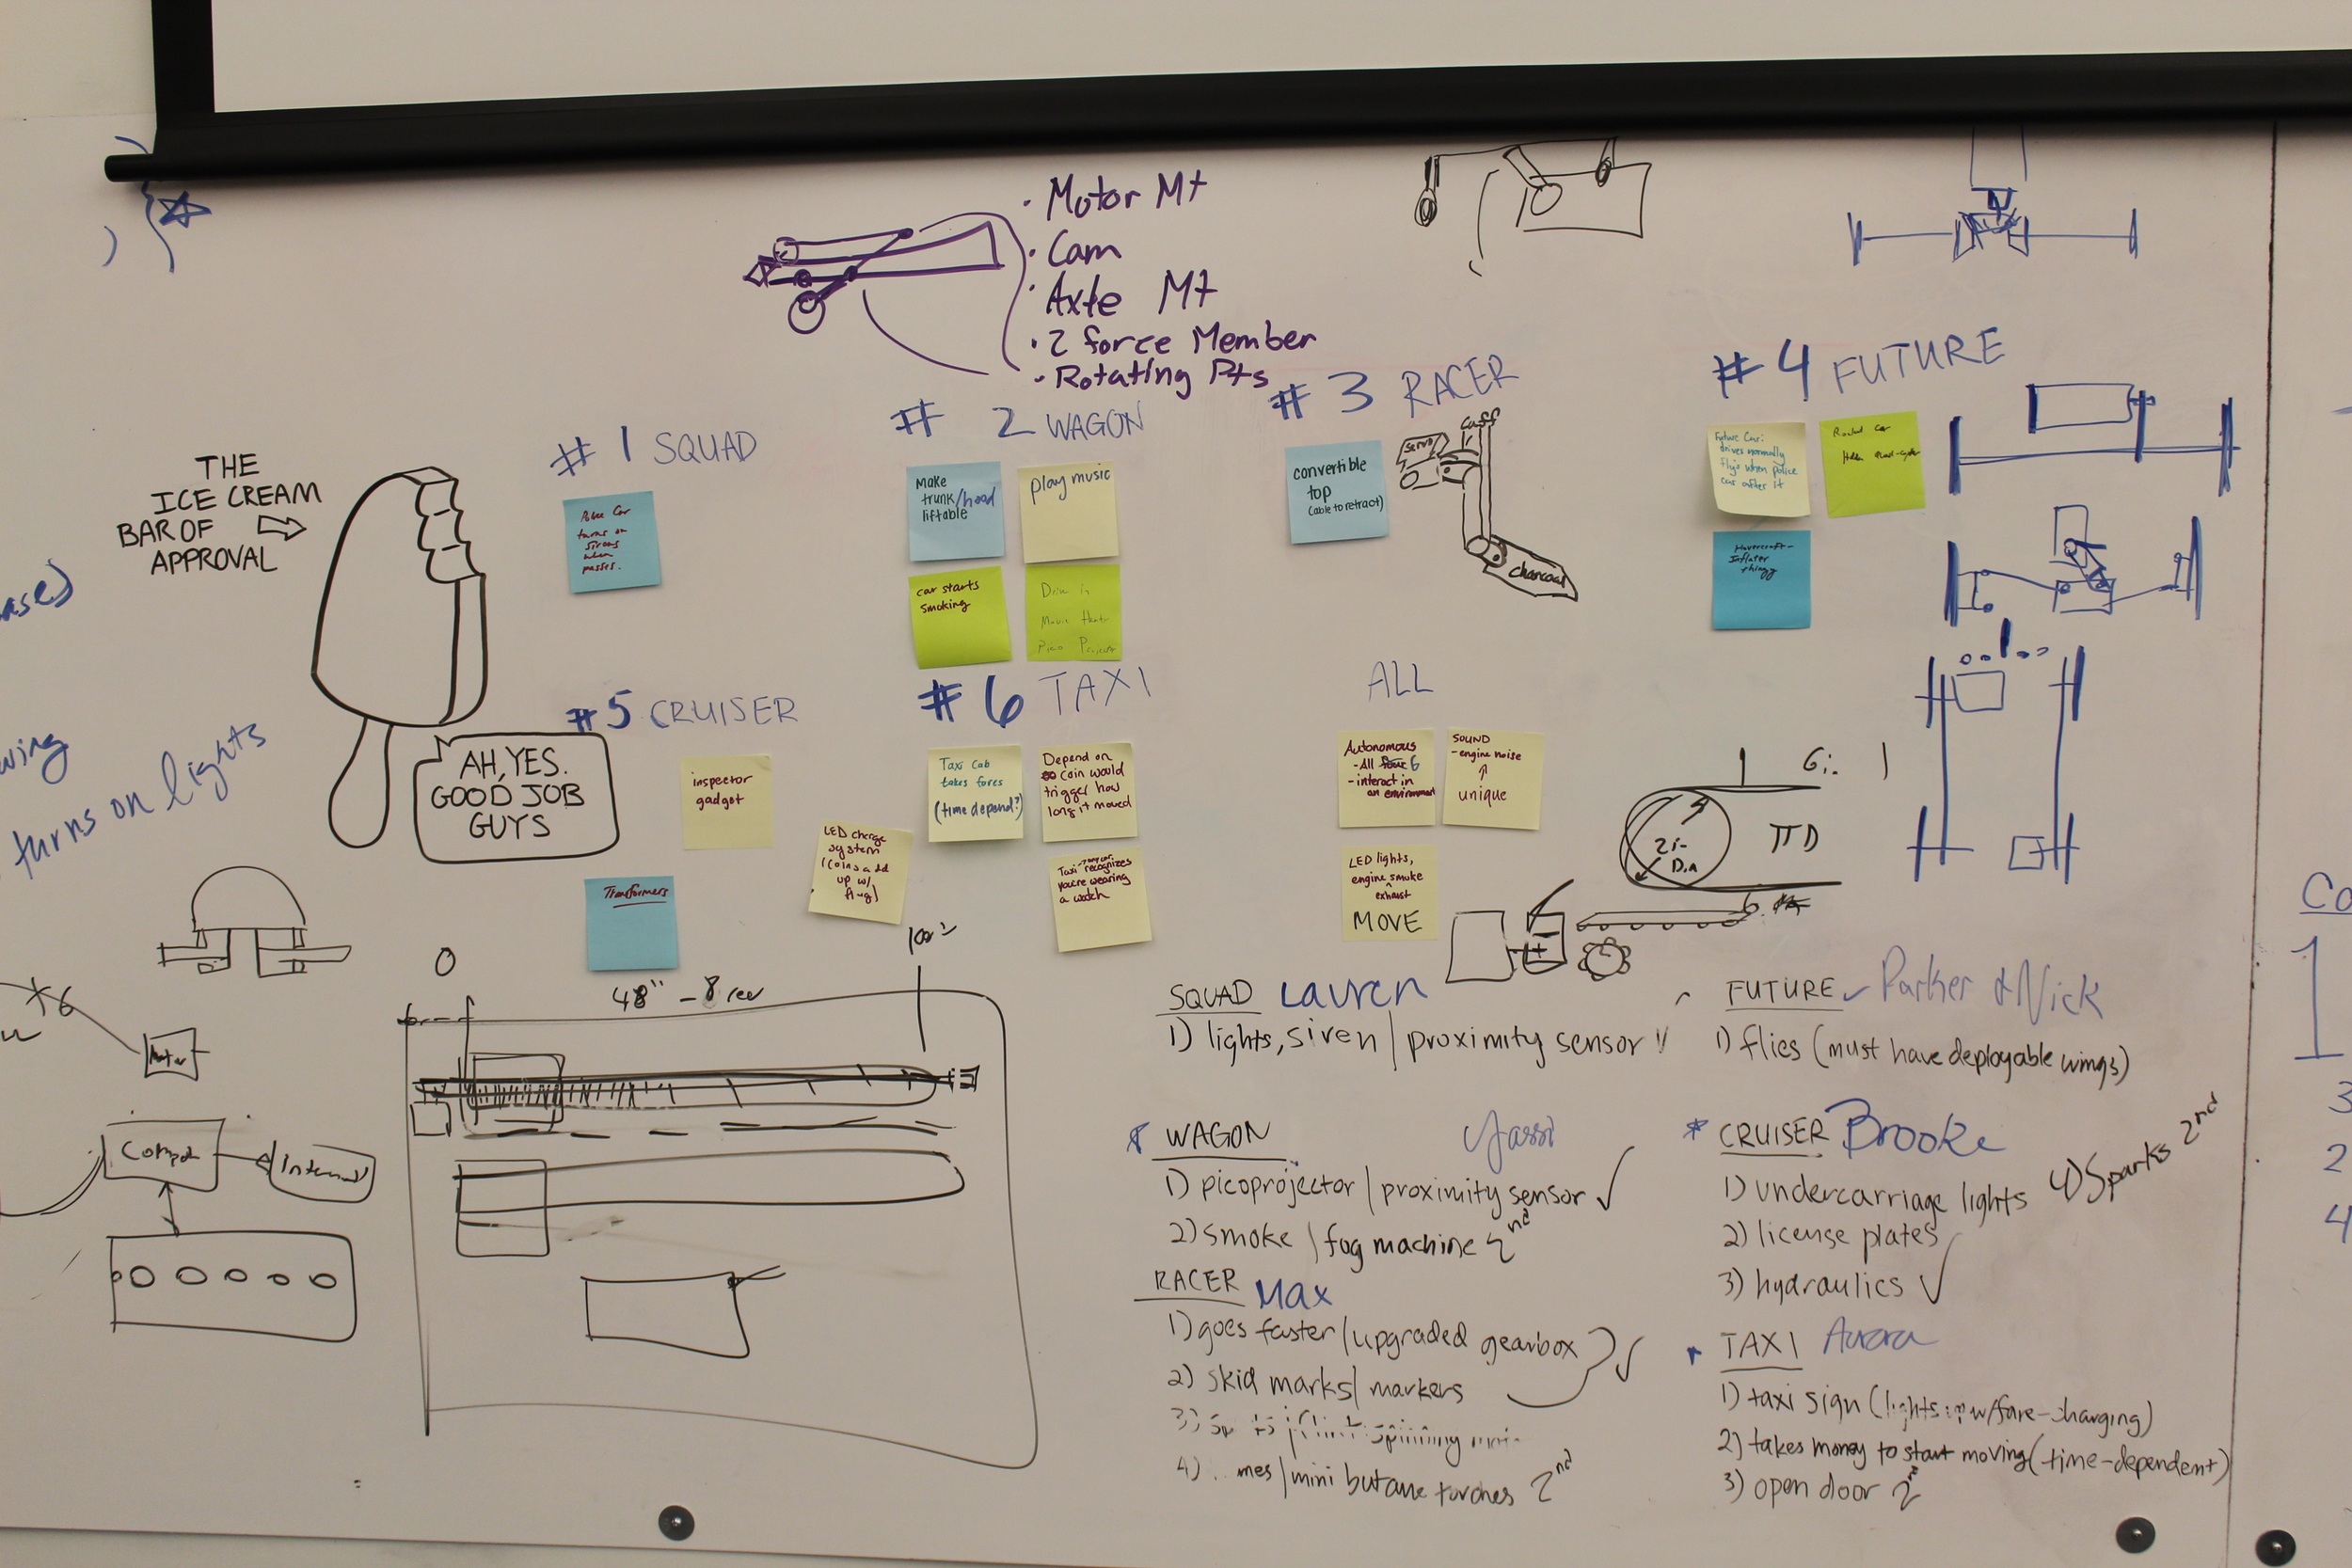 · Motor Mt
· Cam
· Axle Mt
· 2 force Member
· Rotating Pts
THE
ICE CREAM
BAR OF
APPROVAL
AH, YES.
GOOD JOB
GUYS
turns on lights
#1 SQUAD
Police Car
turns on
sirens
when
passes.
#2 WAGON
Make
trunk/hood
liftable
play music
car starts
smoking
Drive in
Movie Theatr
Pico Project
#3 RACER
convertible
top
(able to retract)
servo
Cuff
charcoal
#4 FUTURE
Future Car:
drives normally
flys when police
car after it
Hovercraft-
Inflater
thingy
#5 CRUISER
inspector
gadget
Transformers
LED charge
system
(coins add
up w/
#6 TAXI
Taxi Cab
takes fares
(time depend?)
Depend on
coin would
trigger how
long it moved
Taxi recognizes
you're wearing
a watch
ALL
Autonomous
- All 6
- interact in
an environment
SOUND
- engine noise
unique
LED lights,
engine smoke
exhaust
MOVE
6:1
πD
Dia
0
48" - 8 rev
x6
Motor
SQUAD Lauren
1) lights, siren / proximity sensor
WAGON Yassi
1) picoprojector / proximity sensor ✓
2) smoke / fog machine 2nd
RACER Max
1) goes faster / upgraded gearbox
2) skid marks / markers
3) spinning
4) mes / mini butane torches 2nd
FUTURE ✓ Parker & Nick
1) flies (must have deployable wings)
* CRUISER Brooke
1) undercarriage lights
2) license plates
3) hydraulics ✓
4) Sparks 2nd
TAXI Aurora
1) taxi sign (lights w/fare-charging)
2) takes money to start moving (time-dependent)
3) open door 2nd
Co
1
3
2
4